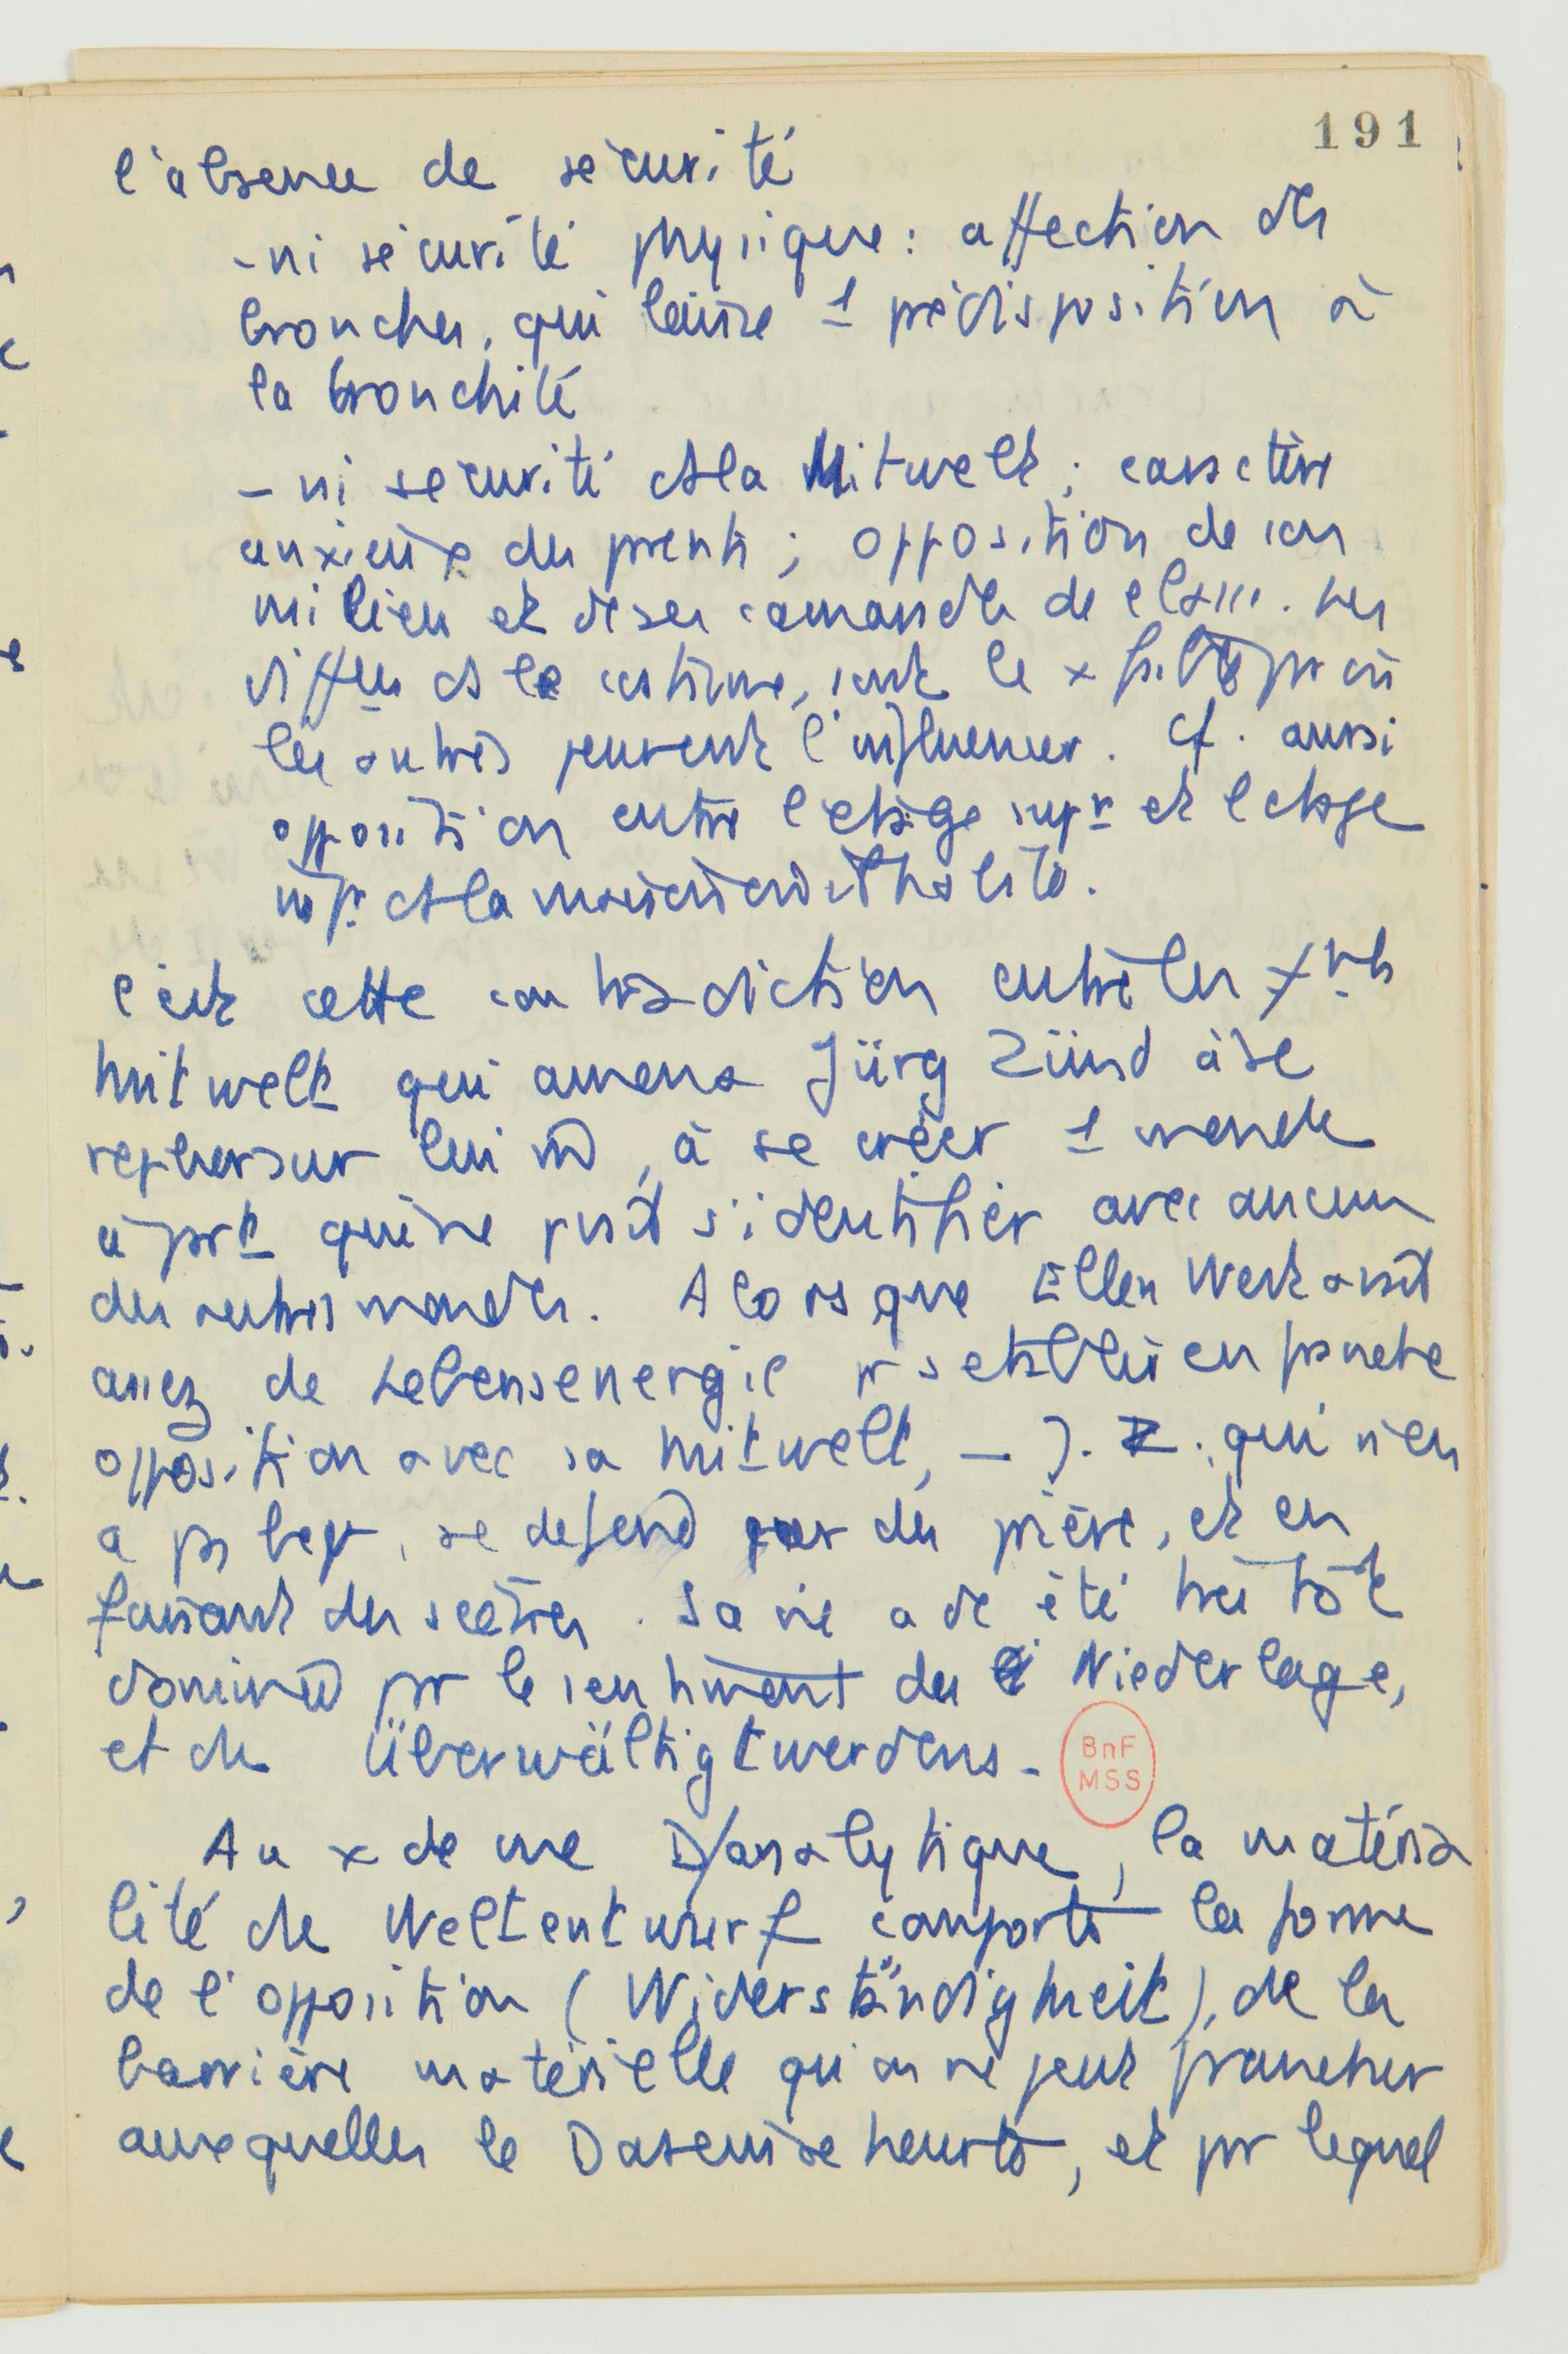 191
l'absence de sécurité
- ni sécurité physique : affection des
bronches, qui laisse 1 prédisposition à
la bronchite
- ni sécurité ds la Mitwelt ; caractère
anxieux des prents ; opposition de son
milieu et de ses camarades de classe. les
ds le costume, sont le x
les autres peuvent l'influencer. Cf. aussi
opposition entre l'etage supr et l'etage
infr ds la maison
C'est cette contradiction entre les
Mitwelt qui amena Jürg Zünd à se
replier sur lui m, à se créer 1 monde
à prt qui ne pvait s'identifier avec aucun
des autres mondes. Alors que Ellen West avait
assez de Lebensenergie pr s'etablir en franche
opposition avec sa Mitwelt, — J. Z. qui n'en
a ps , se defend par des prière, et en
faisant des scènes. Sa vie a dc été très tôt
dominée pr le sentiment des Niederlage,
et de Überwältigtwerdens -
BnF
MSS
Au x de vue D/analytique, la matéria
lité de Weltentwurf comporte la forme
de l'opposition (Widerständigkeit), de la
barrière matérielle qu'on ne peut francher
auxquelles le Dasein se heurte, et pr lequel